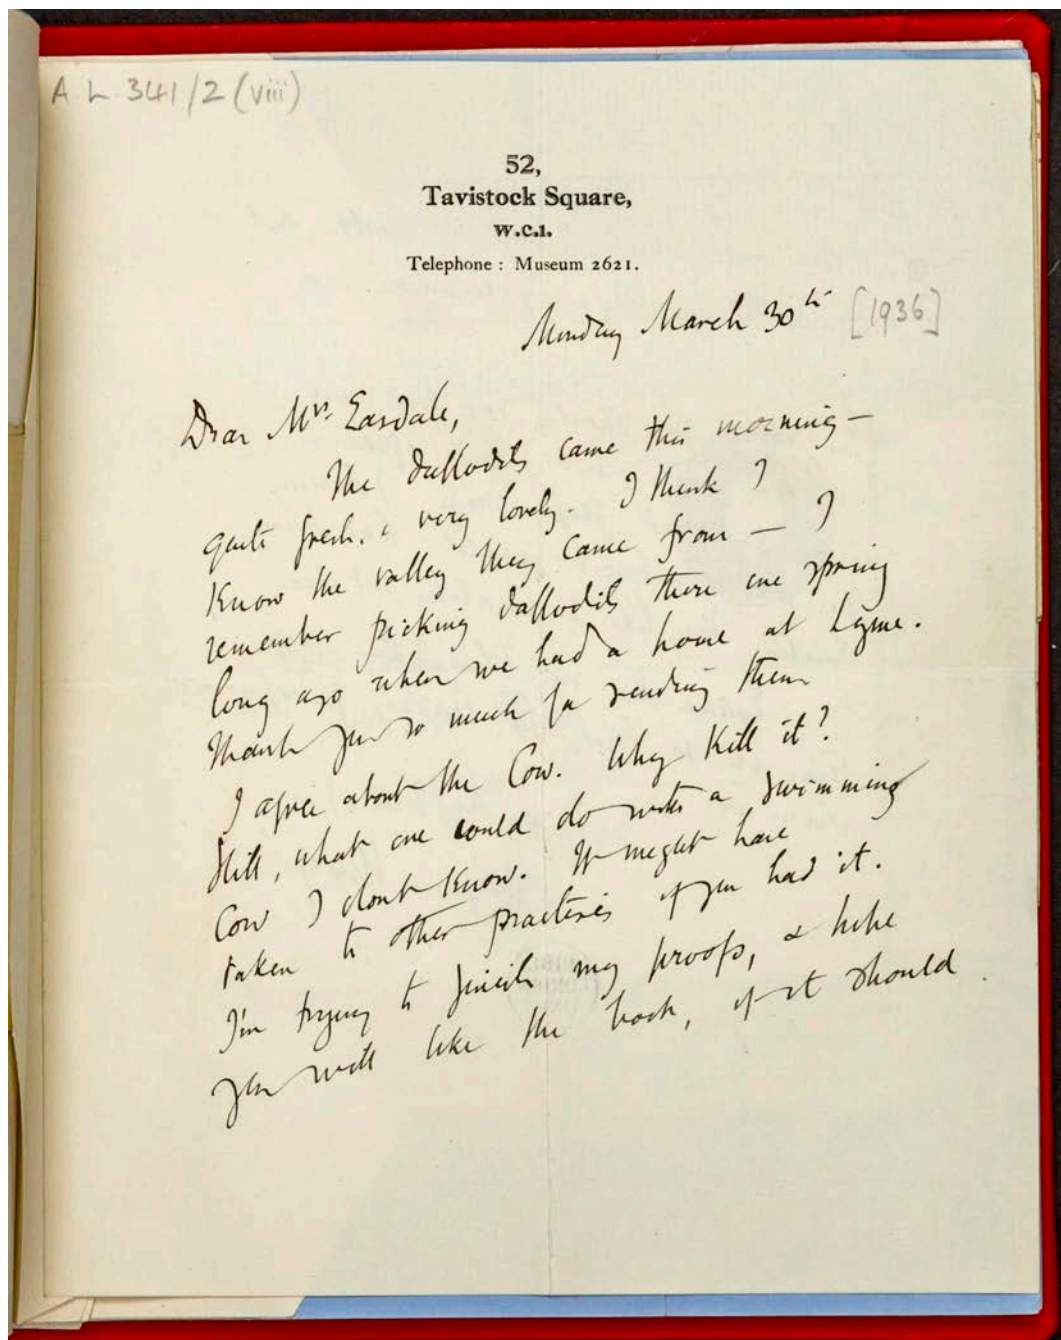 A L 341/2 (viii)
52,
Tavistock Square,
W.C.1.
Telephone : Museum 2621.
Monday March 30th [1936]
Dear Mrs. Easdale,
The daffodils came this morning —
quite fresh, & very lovely. I think I
know the valley they came from — I
remember picking daffodils there one spring
long ago when we had a house at Lyme.
Thank you so much for sending them
I agree about the Cow. Why kill it?
Still, what one could do with a swimming
Cow I dont know. It might have
taken to other practises if you had it.
I'm trying to finish my proofs, & hope
you will like the book, if it should